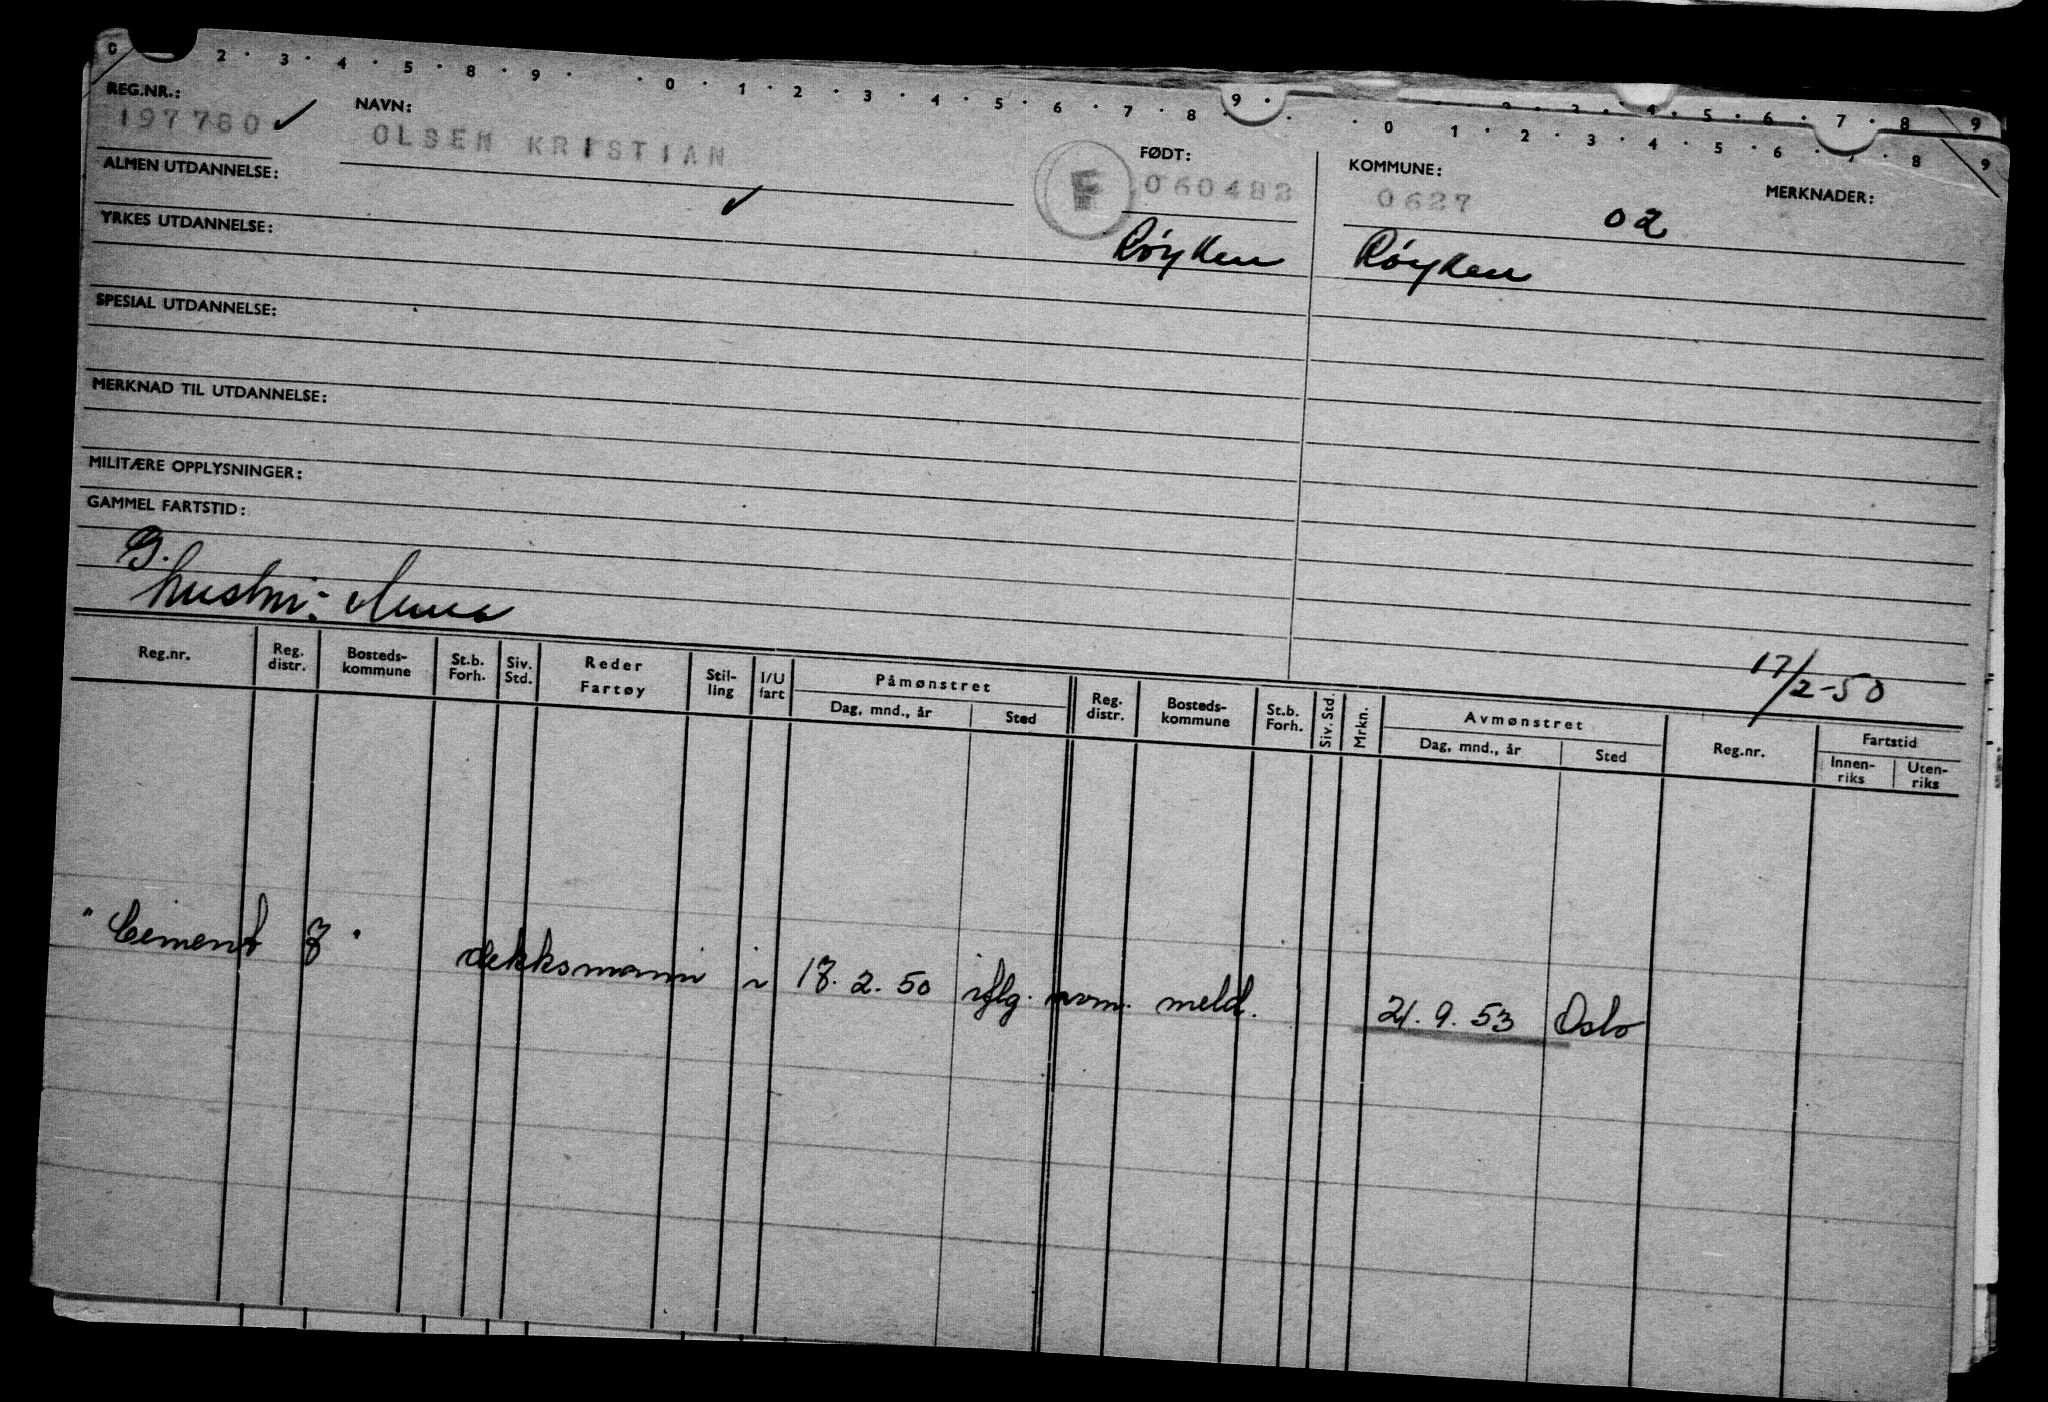 0 2 · 3 · 4 · 5 · 8 · 9 · · 0 · 1 · 2 · 3 · 4 · 5 · 6 · 7 · 8 · 9 · 2 · 3 · 4 · 5 · 6 · 7 · 8 9
· 0 1 · 2 · 3 · 4 · 5 · 6 · 7 · 8 9
REG.NR.: NAVN: FØDT: KOMMUNE: MERKNADER:
197780 ✓ OLSEN KRISTIAN F 060482 0627 02
ALMEN UTDANNELSE: ✓
Røyken Røyken
YRKES UTDANNELSE:
SPESIAL UTDANNELSE:
MERKNAD TIL UTDANNELSE:
MILITÆRE OPPLYSNINGER:
GAMMEL FARTSTID:
G.
hustru: Anna
17/2-50
Reg.nr. Reg. distr. Bosteds-kommune St.b. Forh. Siv. Std. Reder Fartøy Stil-ling I/U fart Påmønstret Dag, mnd., år Sted Reg. distr. Bosteds-kommune St.b. Forh. Siv. Std. Mrkn. Avmønstret Dag, mnd., år Sted Reg.nr. Fartstid Innen-riks Uten-riks
"Cement 7" dekksmann i 17.2.50 iflg. avm. meld. 21.9.53 Oslo